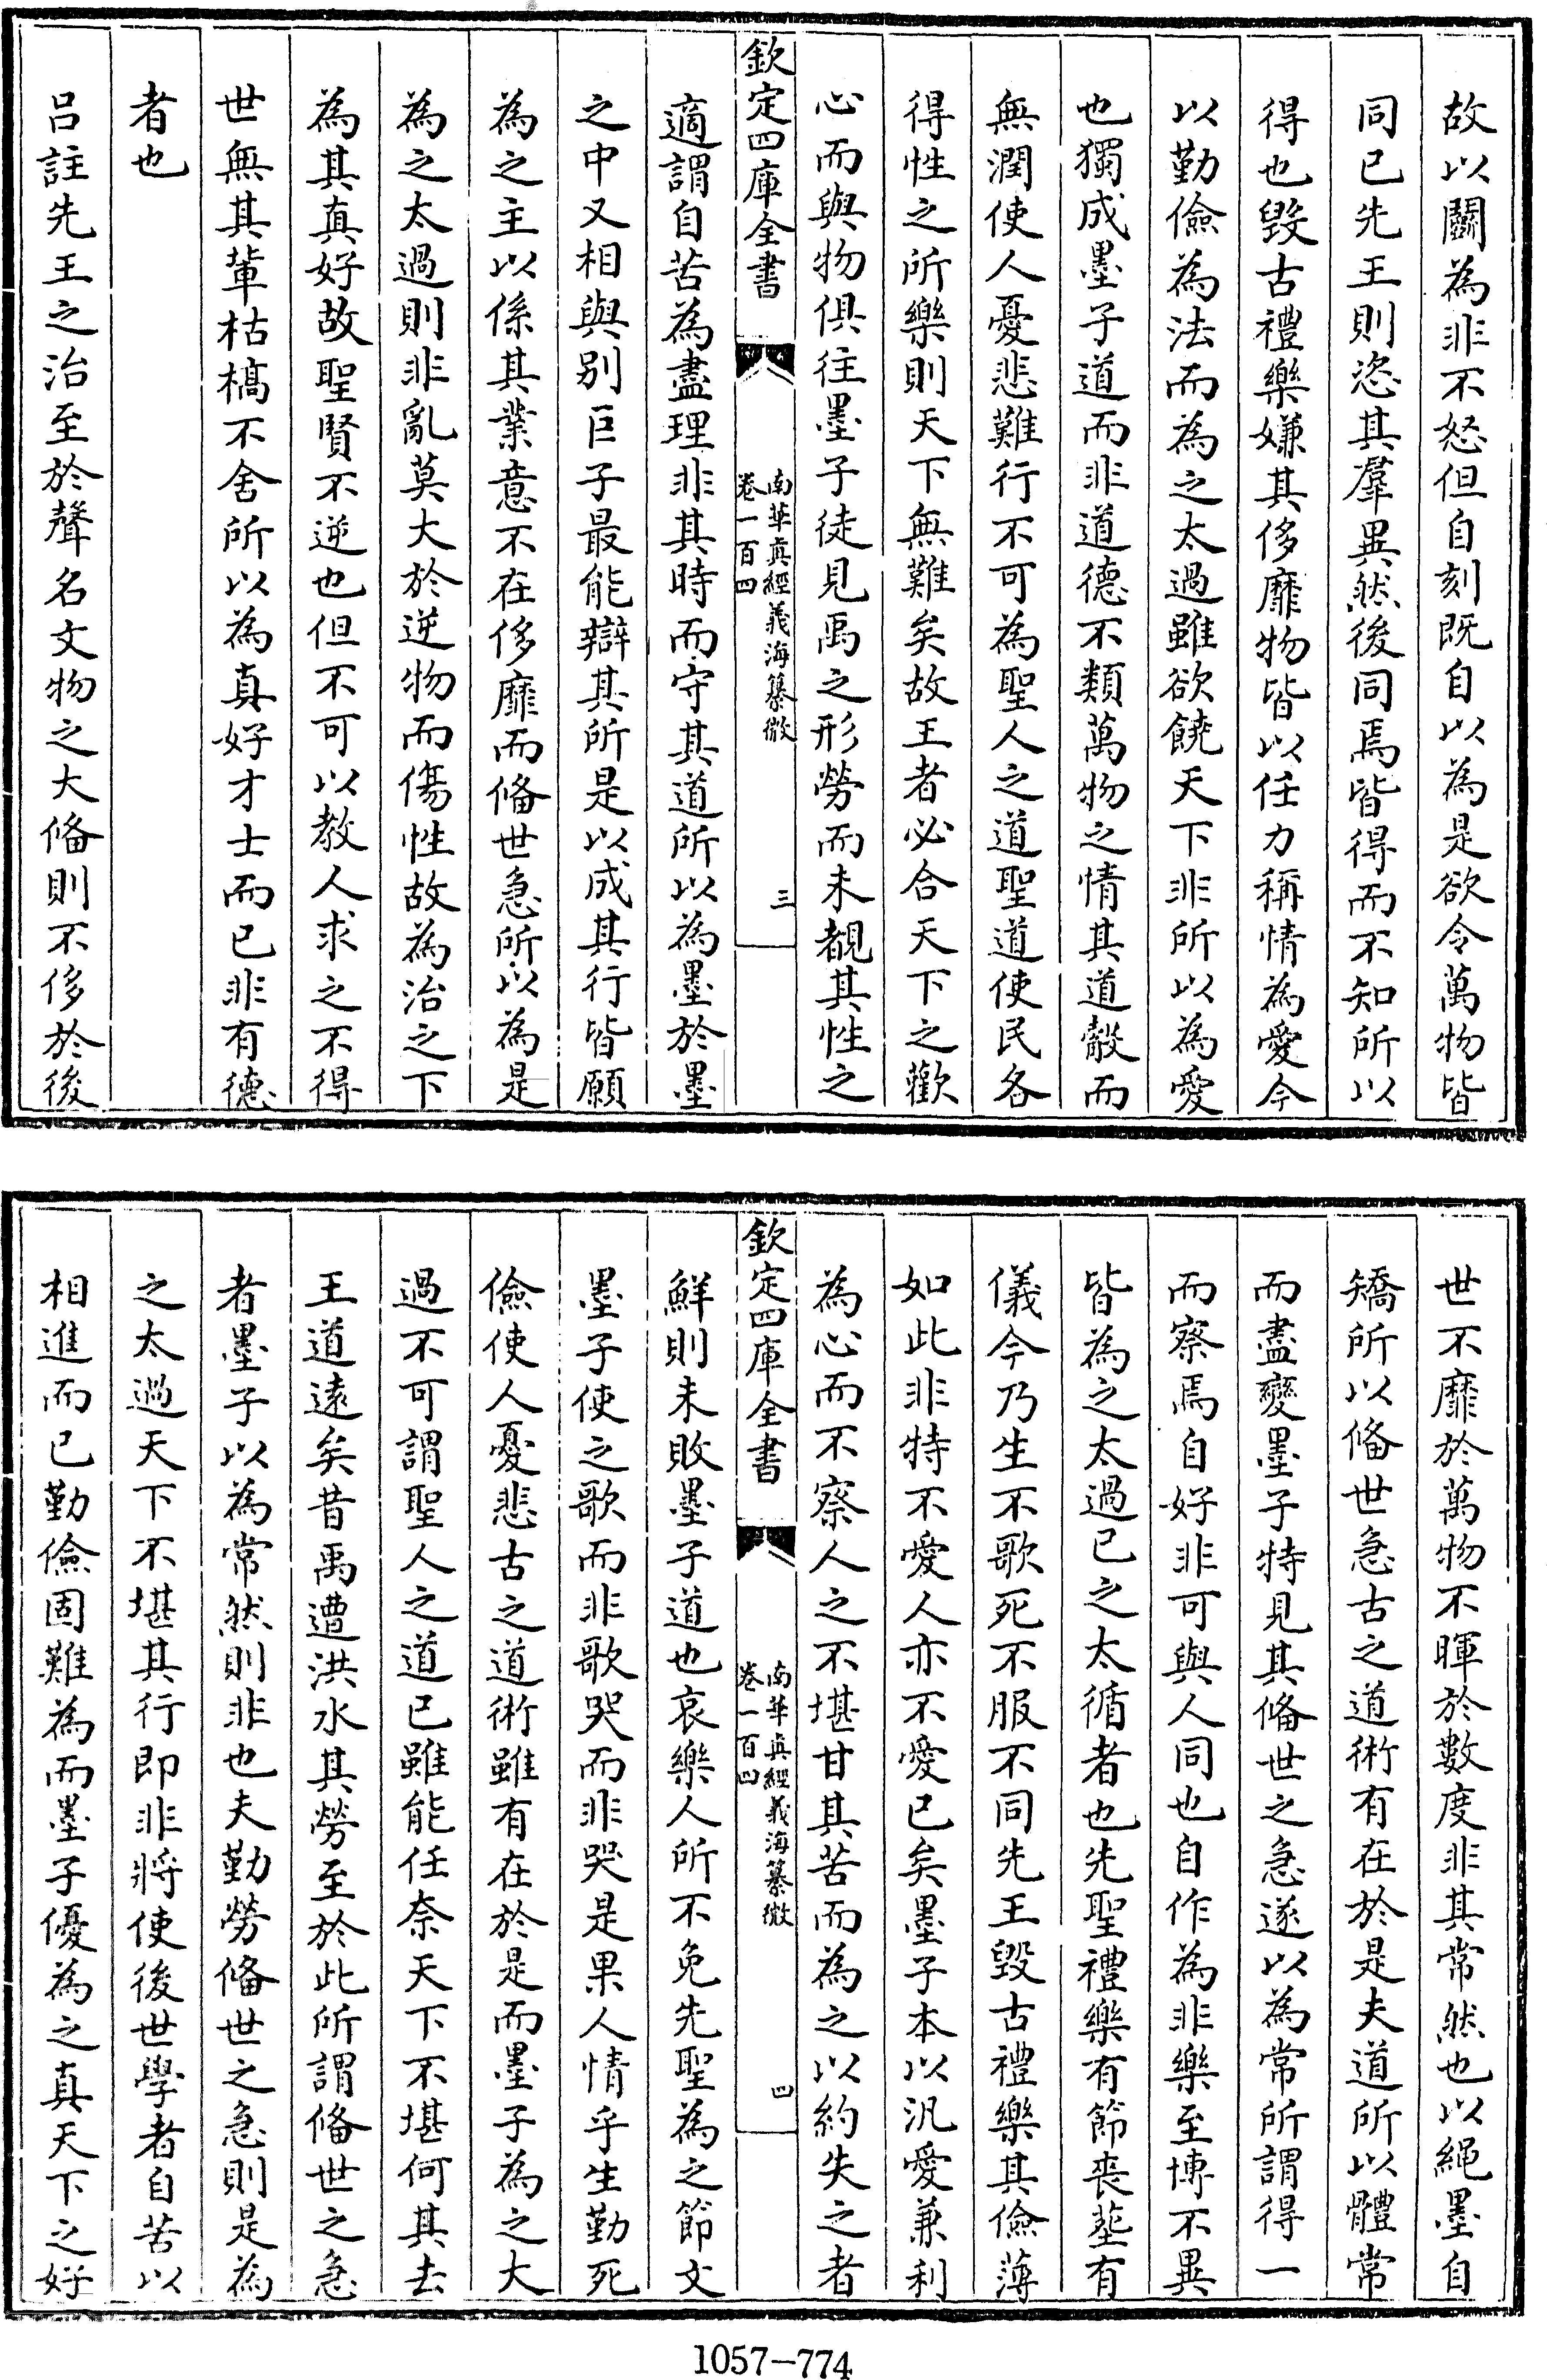 故以鬬為非不怒但自刻既自以為是欲令萬物皆
同已先王則恣其羣異然後同焉皆得而不知所以
得也毀古禮樂嫌其侈靡物皆以任力稱情為愛今
以勤儉為法而為之太過雖欲饒天下非所以為愛
也獨成墨子道而非道德不類萬物之情其道觳而
無潤使人憂悲難行不可為聖人之道聖道使民各
得性之所樂則天下無難矣故王者必合天下之歡
心而與物俱往墨子徒見禹之形勞而未覩其性之
欽定四庫全書
南華真經義海纂微
卷一百四
三
適謂自苦為盡理非其時而守其道所以為墨於墨
之中又相與别巨子最能辯其所是以成其行皆願
為之主以係其業意不在侈靡而備世急所以為是
為之太過則非亂莫大於逆物而傷性故為治之下
為其真好故聖賢不逆也但不可以教人求之不得
世無其輩枯槁不舍所以為真好才士而已非有德
者也
吕註先王之治至於聲名文物之大備則不侈於後
世不靡於萬物不暉於數度非其常然也以繩墨自
矯所以備世急古之道術有在於是夫道所以體常
而盡變墨子特見其備世之急遂以為常所謂得一
而察焉自好非可與人同也自作為非樂至博不異
皆為之太過已之太循者也先聖禮樂有節喪塟有
儀今乃生不歌死不服不同先王毀古禮樂其儉薄
如此非特不愛人亦不愛已矣墨子本以汎愛兼利
為心而不察人之不堪甘其苦而為之以約失之者
欽定四庫全書
南華真經義海纂微
卷一百四
四
鮮則未敗墨子道也哀樂人所不免先聖為之節文
墨子使之歌而非歌哭而非哭是果人情乎生勤死
儉使人憂悲古之道術雖有在於是而墨子為之大
過不可謂聖人之道已雖能任奈天下不堪何其去
王道遠矣昔禹遭洪水其勞至於此所謂備世之急
者墨子以為常然則非也夫勤勞備世之急則是為
之太過天下不堪其行即非將使後世學者自苦以
相進而已勤儉固難為而墨子優為之真天下之好
1057-774